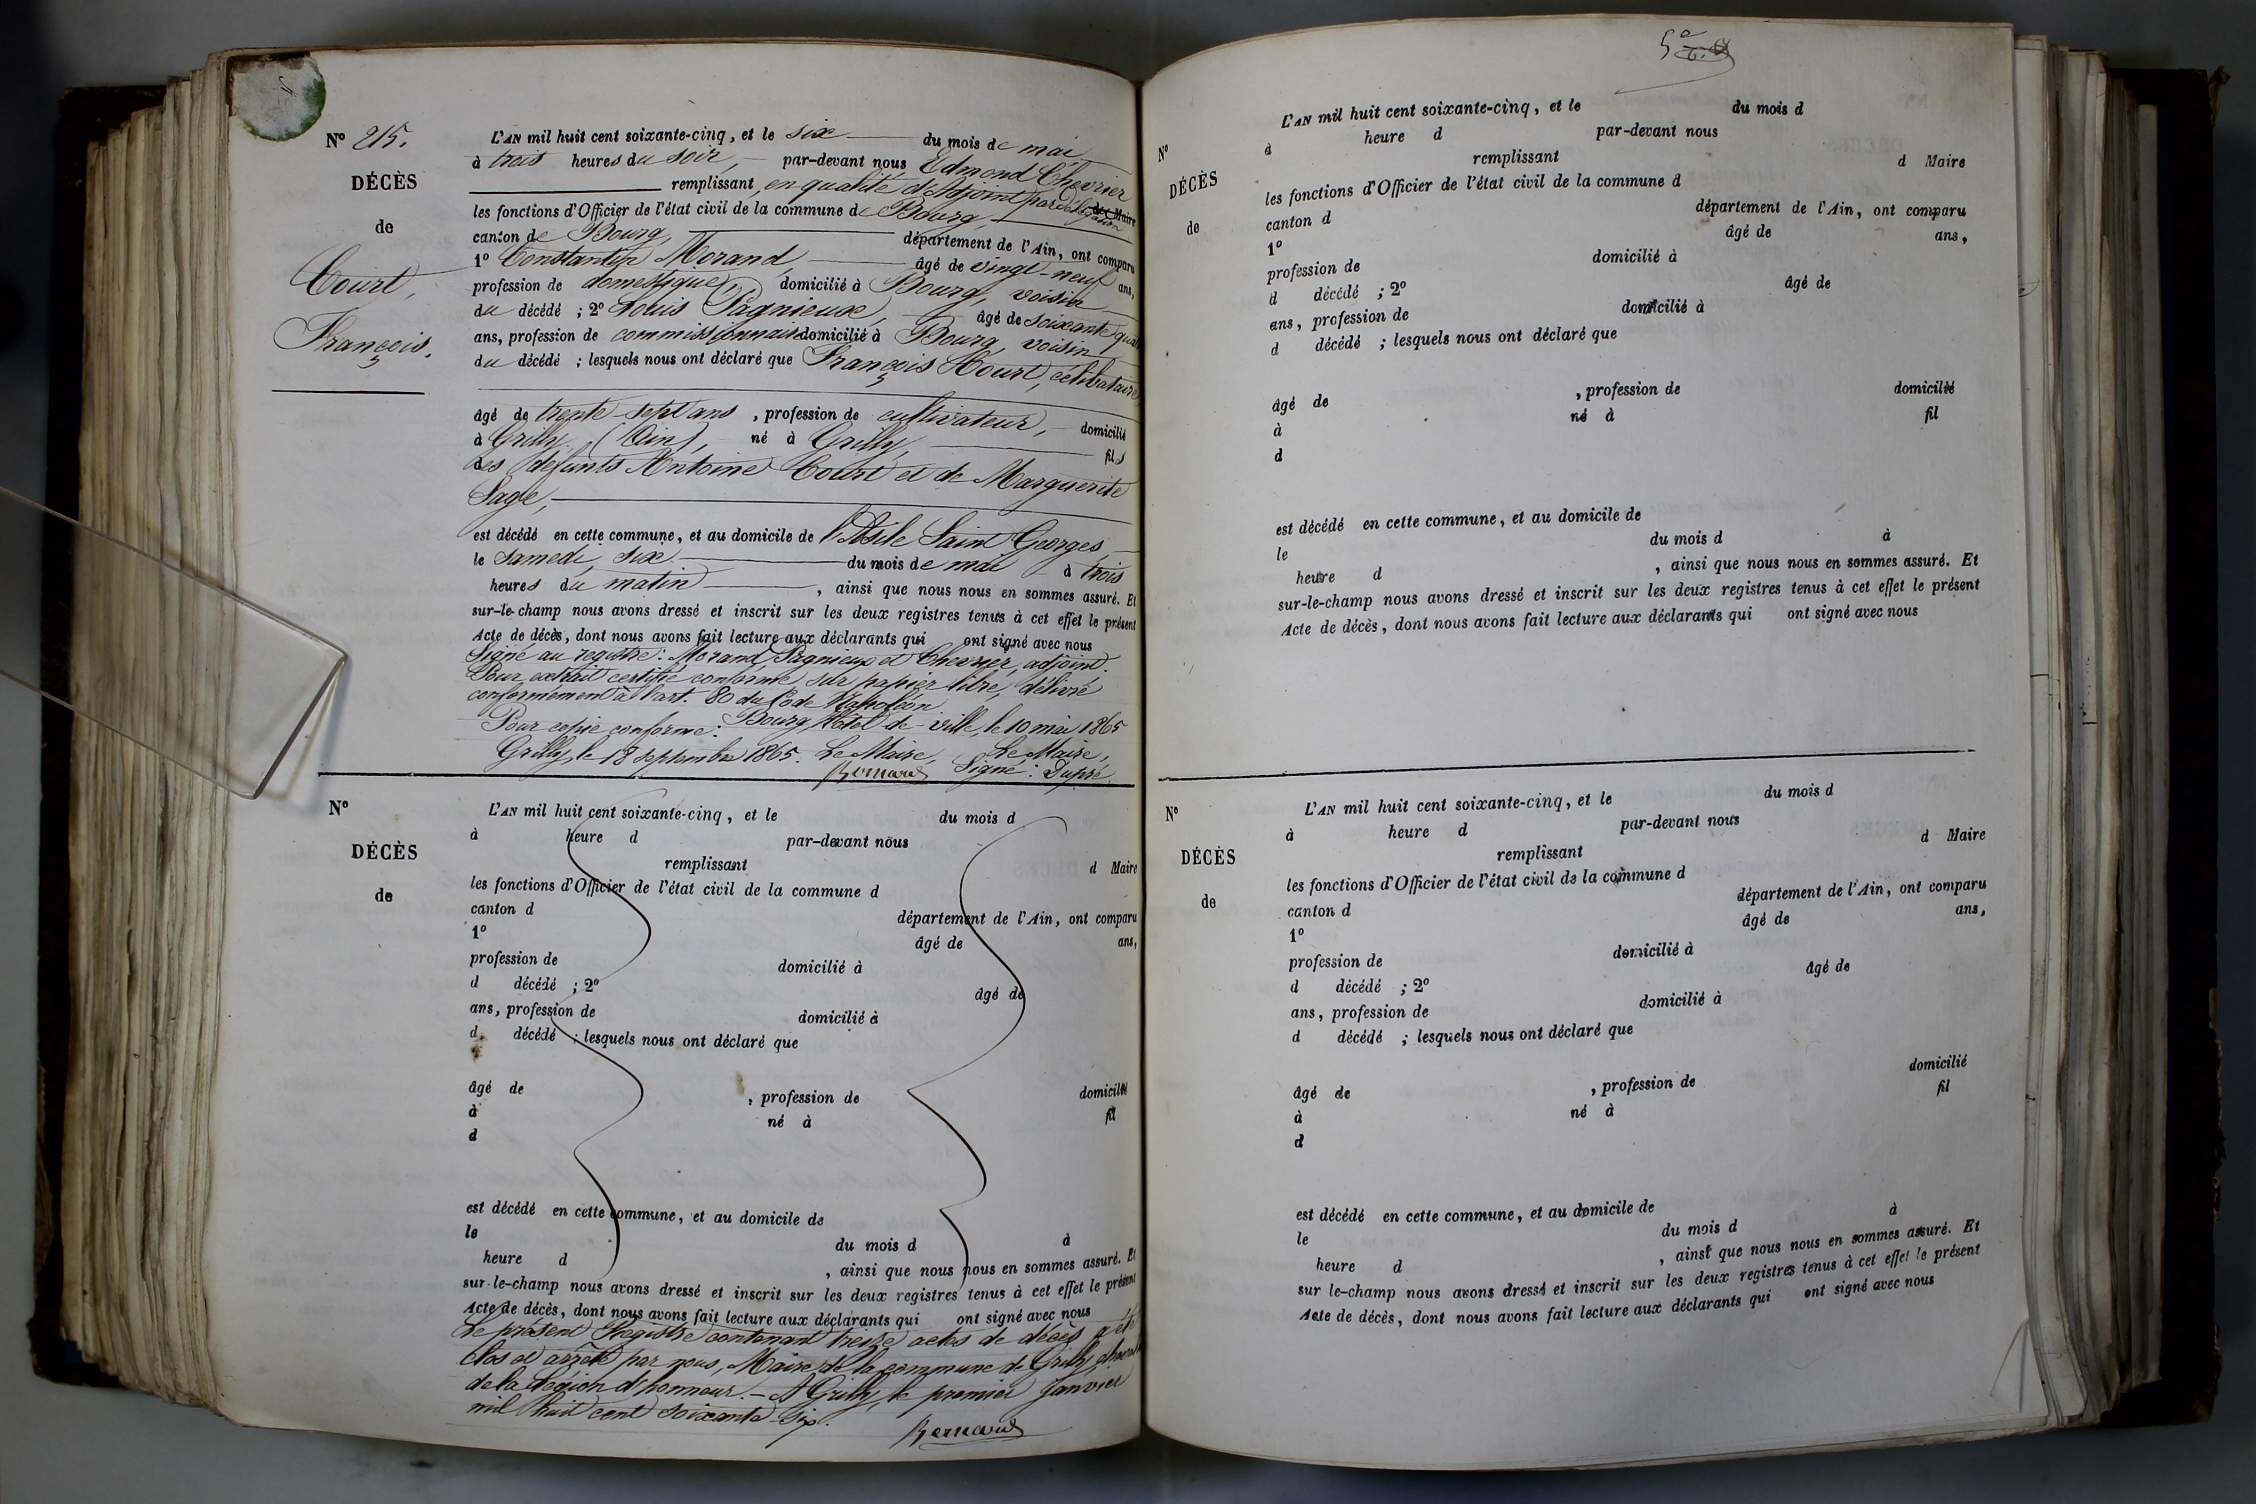 Nº 215.
DÉCÈS
de
Court,
François.
L'AN mil huit cent soixante-cinq, et le six du mois de mai,
à trois heures du soir, par-devant nous Edmond Chevrier
remplissant, en qualité d'Adjoint par délégation du Maire
les fonctions d'Officier de l'état civil de la commune de Bourg,
canton de Bourg, département de l'Ain, ont comparu
1º Constantin Morand, âgé de vingt-neuf ans,
profession de domestique, domicilié à Bourg, voisin
du décédé ; 2º Louis Pagnieux, âgé de soixante quatre
ans, profession de commissionnaire domicilié à Bourg voisin
du décédé ; lesquels nous ont déclaré que François Court, célibataire
âgé de trente-sept ans, profession de cultivateur, domicilié
à Grilly (Ain), né à Grilly, fils
des défunts Antoine Court et de Marguerite
Sage,
est décédé en cette commune, et au domicile de l'Asile Saint Georges,
le samedi six du mois de mai à trois
heures du matin, ainsi que nous nous en sommes assuré. Et
sur-le-champ nous avons dressé et inscrit sur les deux registres tenus à cet effet le présent
Acte de décès, dont nous avons fait lecture aux déclarants qui ont signé avec nous
Signé au registre : Morand, Pagnieux et Chevrier, adjoint.
Pour extrait certifié conforme sur papier libre, délivré
conformément à l'art. 80 du Code Napoléon
Bourg, Hôtel de-Ville, le 10 mai 1865
Pour copie conforme : Le Maire,
Grilly, le 18 septembre 1865. Le Maire, Signé : Dupré
Bernard
Nº
DÉCÈS
de
L'AN mil huit cent soixante-cinq, et le du mois d
à heure d par-devant nous
remplissant d Maire
les fonctions d'Officier de l'état civil de la commune d
canton d département de l'Ain, ont comparu
1º âgé de ans,
profession de domicilié à
d décédé ; 2º âgé de
ans, profession de domicilié à
d décédé ; lesquels nous ont déclaré que
âgé de , profession de domicilié
à né à fil
d
est décédé en cette commune, et au domicile de
le du mois d à
heure d , ainsi que nous nous en sommes assuré. Et
sur-le-champ nous avons dressé et inscrit sur les deux registres tenus à cet effet le présent
Acte de décès, dont nous avons fait lecture aux déclarants qui ont signé avec nous
Le présent Registre contenant treize actes de décès a été
clos et arrêté par nous, Maire de la commune de Grilly,
de la Légion d'honneur. - A Grilly, le premier Janvier
mil huit cent soixante-six.
Bernard
Nº
DÉCÈS
de
L'AN mil huit cent soixante-cinq, et le du mois d
à heure d par-devant nous
remplissant d Maire
les fonctions d'Officier de l'état civil de la commune d
canton d département de l'Ain, ont comparu
1º âgé de ans,
profession de domicilié à
d décédé ; 2º âgé de
ans, profession de domicilié à
d décédé ; lesquels nous ont déclaré que
âgé de , profession de domicilié
à né à fil
d
est décédé en cette commune, et au domicile de
le du mois d à
heure d , ainsi que nous nous en sommes assuré. Et
sur-le-champ nous avons dressé et inscrit sur les deux registres tenus à cet effet le présent
Acte de décès, dont nous avons fait lecture aux déclarants qui ont signé avec nous
Nº
DÉCÈS
de
L'AN mil huit cent soixante-cinq, et le du mois d
à heure d par-devant nous
remplissant d Maire
les fonctions d'Officier de l'état civil de la commune d
canton d département de l'Ain, ont comparu
1º âgé de ans,
profession de domicilié à
d décédé ; 2º âgé de
ans, profession de domicilié à
d décédé ; lesquels nous ont déclaré que
âgé de , profession de domicilié
à né à fil
d
est décédé en cette commune, et au domicile de
le du mois d à
heure d , ainsi que nous nous en sommes assuré. Et
sur le-champ nous avons dressé et inscrit sur les deux registres tenus à cet effet le présent
Acte de décès, dont nous avons fait lecture aux déclarants qui ont signé avec nous